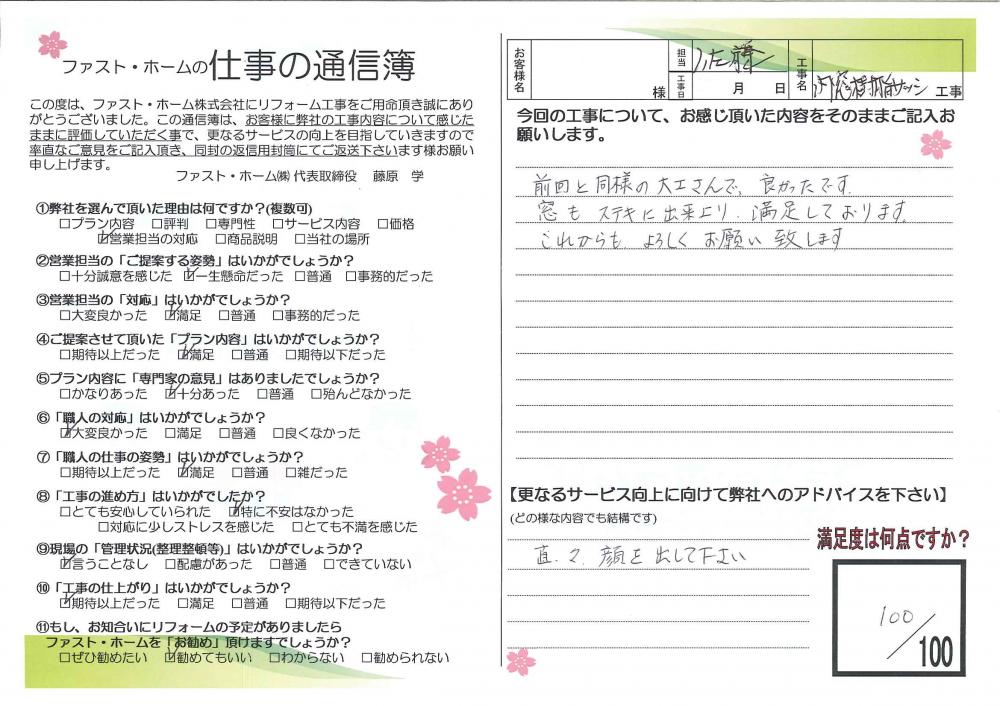 ファスト・ホームの仕事の通信簿
この度は、ファスト・ホーム株式会社にリフォーム工事をご用命頂き誠にあり
がとうございました。この通信簿は、お客様に弊社の工事内容について感じた
ままに評価していただく事で、更なるサービスの向上を目指していきますので
率直なご意見をご記入頂き、同封の返信用封筒にてご返送下さいます様お願い
申し上げます。
ファスト・ホーム㈱ 代表取締役 藤原 学
①弊社を選んで頂いた理由は何ですか？(複数可)
□プラン内容 □評判 □専門性 □サービス内容 □価格
☑営業担当の対応 □商品説明 □当社の場所
②営業担当の「ご提案する姿勢」はいかがでしょうか？
□十分誠意を感じた ☑一生懸命だった □普通 □事務的だった
③営業担当の「対応」はいかがでしょうか？
□大変良かった ☑満足 □普通 □事務的だった
④ご提案させて頂いた「プラン内容」はいかがでしょうか？
□期待以上だった ☑満足 □普通 □期待以下だった
⑤プラン内容に「専門家の意見」はありましたでしょうか？
□かなりあった ☑十分あった □普通 □殆んどなかった
⑥「職人の対応」はいかがでしょうか？
☑大変良かった □満足 □普通 □良くなかった
⑦「職人の仕事の姿勢」はいかがでしょうか？
□期待以上だった ☑満足 □普通 □雑だった
⑧「工事の進め方」はいかがでしたか？
□とても安心していられた ☑特に不安はなかった
□対応に少しストレスを感じた □とても不満を感じた
⑨現場の「管理状況(整理整頓等)」はいかがでしょうか？
☑言うことなし □配慮があった □普通 □できていない
⑩「工事の仕上がり」はいかがでしょうか？
☑期待以上だった □満足 □普通 □期待以下だった
⑪もし、お知合いにリフォームの予定がありましたら
ファスト・ホームを「お勧め」頂けますでしょうか？
□ぜひ勧めたい ☑勧めてもいい □わからない □勧められない
お客様名 様 担当 佐藤 工事日 月 日 工事名 工事
今回の工事について、お感じ頂いた内容をそのままご記入お
願いします。
前回と同様の大工さんで、良かったです。
窓もステキに出来上り、満足しております。
これからも よろしく お願い致します
【更なるサービス向上に向けて弊社へのアドバイスを下さい】
(どの様な内容でも結構です)
顔を出して下さい
満足度は何点ですか？
100/100